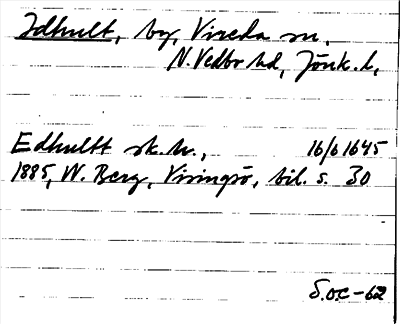 Idhult, by, Vireda sn,
N. Vedbo hd, Jönk. l,
Edhultt sk. hr., 16/6 1645
1885, W. Berg, Visingsö, bil. s. 30
S.O.C-62